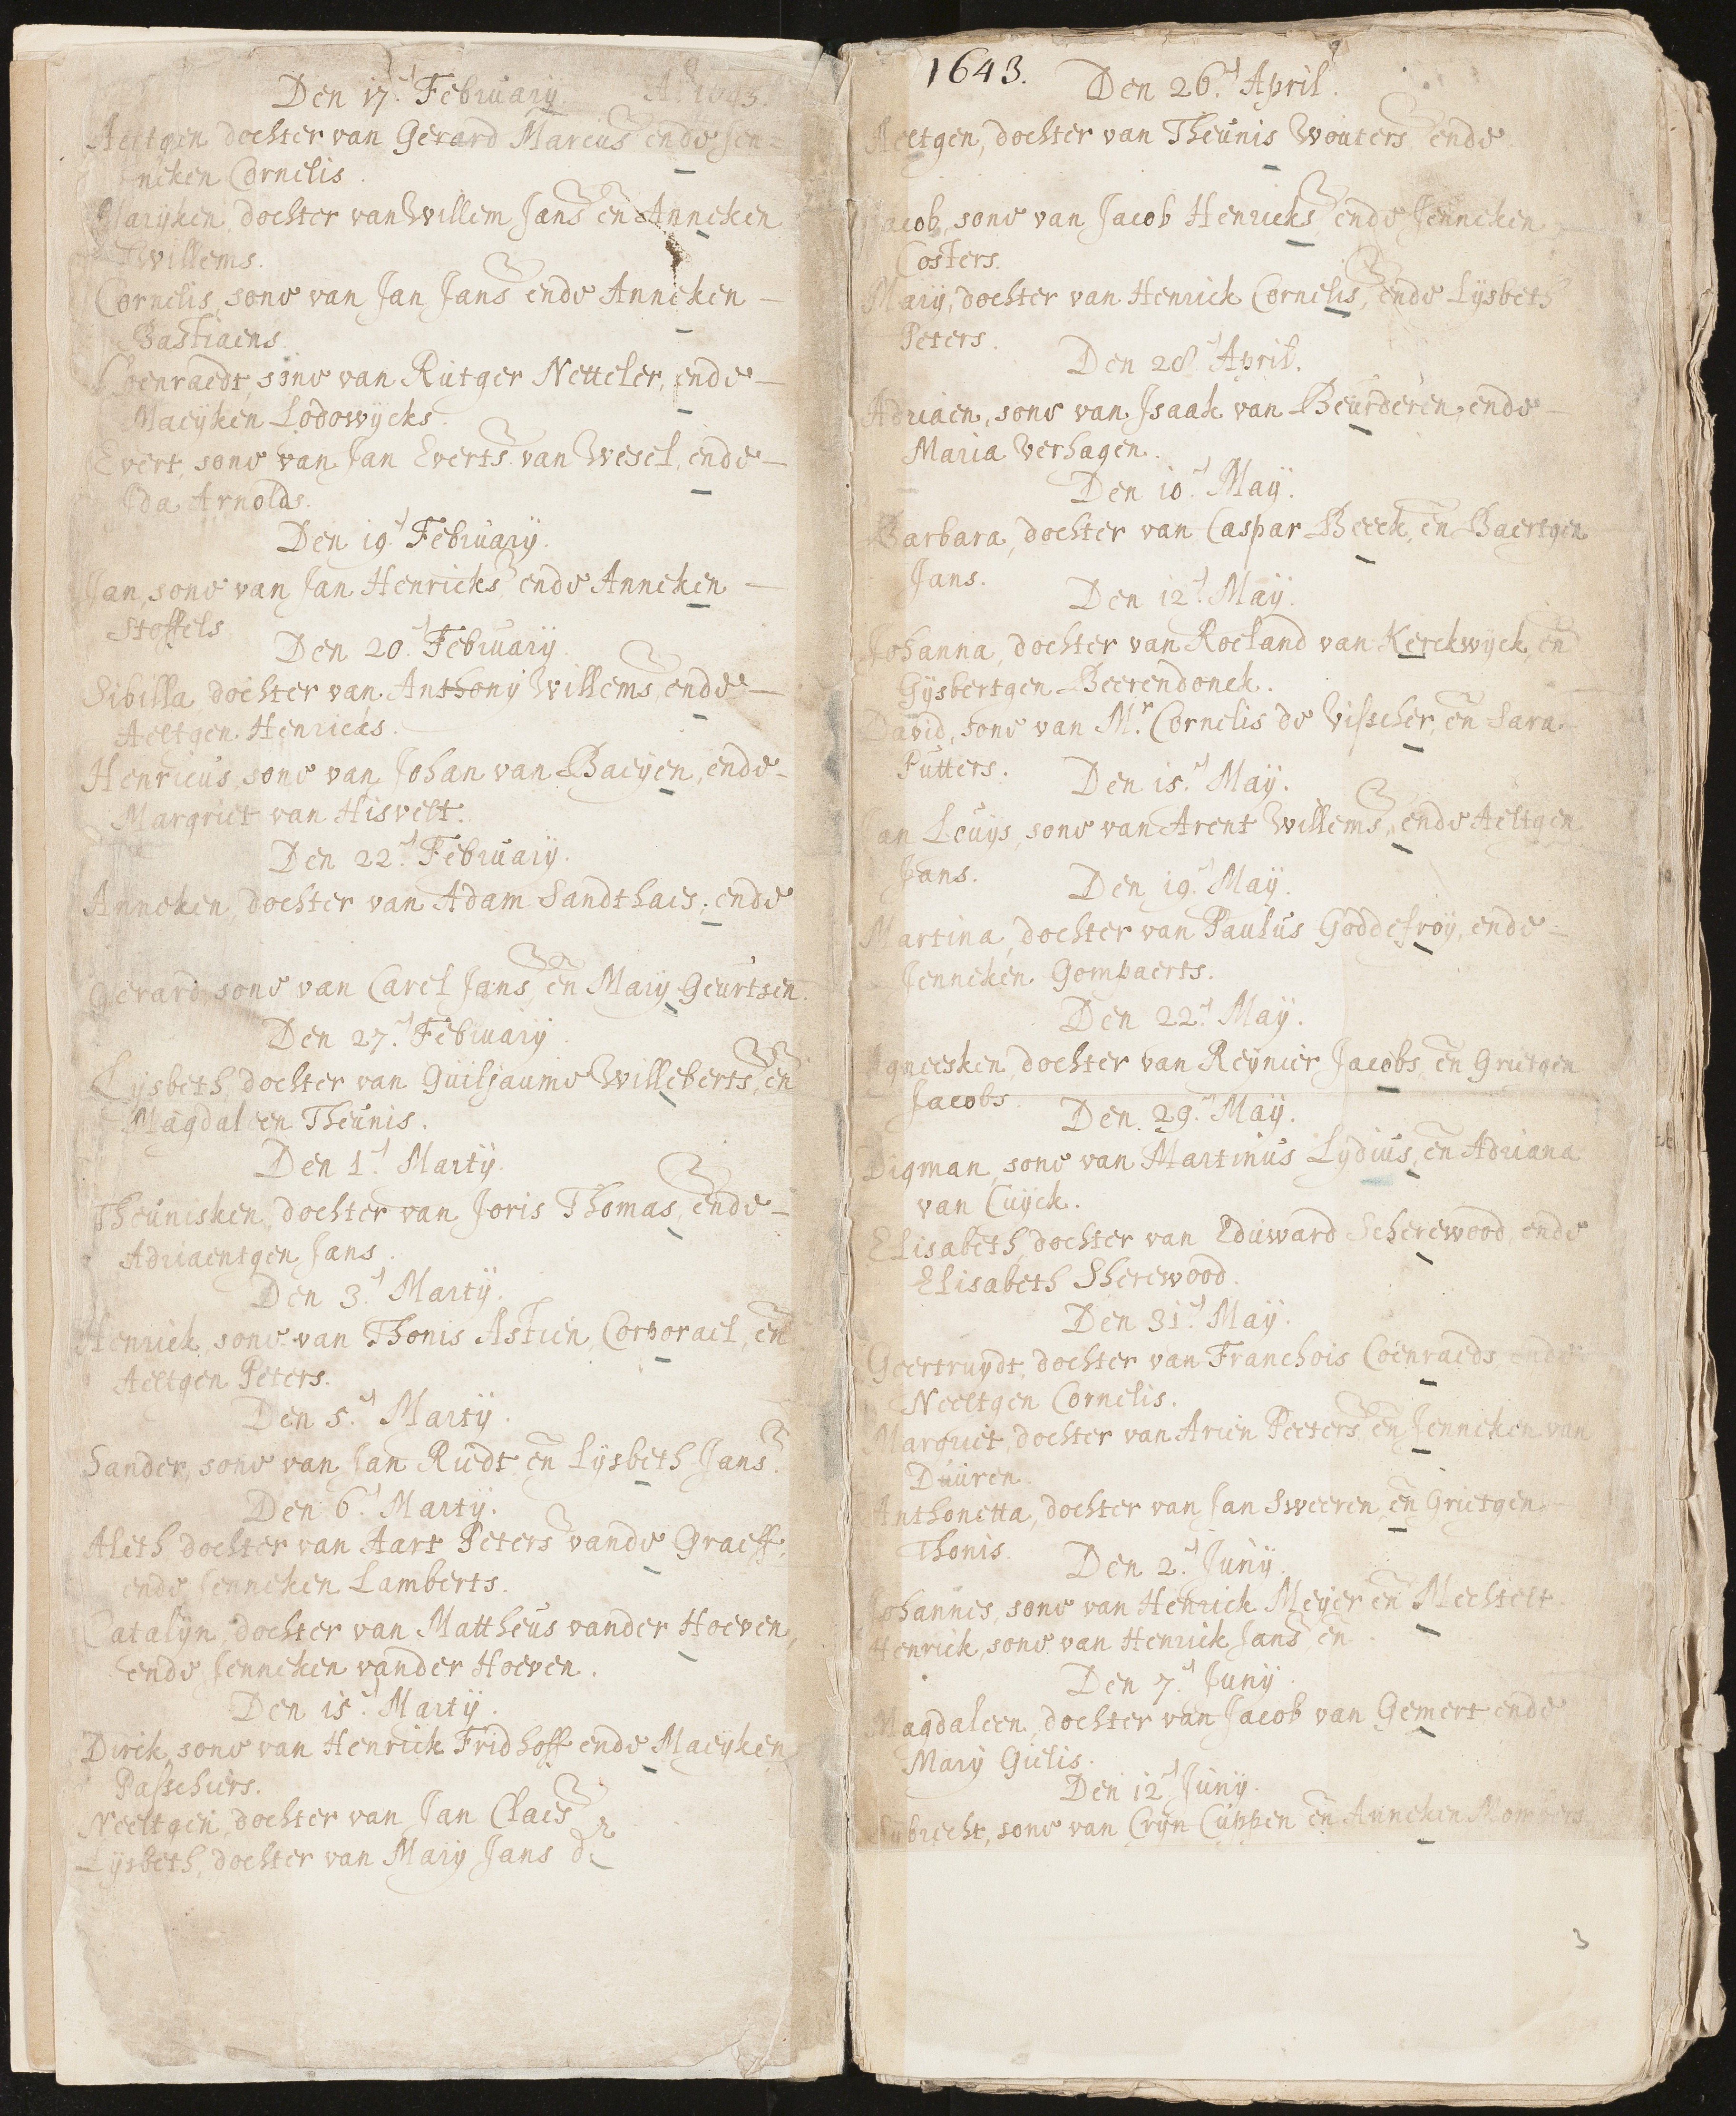 Den 17.d February. Aº 1643.
Aeltgen dochter van Gerard Marcus ende Jen-
neken Cornelis.
Maryken, dochter van Willem Jans en Anneken
Willems.
Cornelis, sone van Jan Jans ende Anneken
Bastiaens
Coenraedt, sone van Rutger Netteler, ende
Maeyken Lodowycks.
Evert, sone van Jan Everts van Wesel, ende
Ida Arnolds.
Den 19.d February.
Jan, sone van Jan Henricks ende Anneken
Stoffels
Den 20.d February.
Sibilla, dochter van Anthony Willems, ende
Aeltgen Henricks.
Henricus, sone van Johan van Baeyen, ende
Margriet van Hisvelt.
Den 22.d February.
Anneken, dochter van Adam Sandthaes, ende
Gerard, sone van Carel Jans, en Mary Geurtsen.
Den 27.d February
Lysbeth, dochter van Guiljaume Willeberts, en
Magdaleen Theunis.
Den 1.d Marty.
Theunisken, dochter van Joris Thomas, ende
Adriaentgen Jans.
Den 3.d Marty.
Henrick, sone van Thonis Astien, Corporael, en
Aeltgen Peters.
Den 5.d Marty.
Sander, sone van Jan Rudt en Lysbeth Jans.
Den 6.d Marty.
Aleth dochter van Aart Peters vande Graeff,
ende Jenneken Lamberts.
Catalyn, dochter van Mattheus vander Hoeven,
ende Jenneken vander Hoeven.
Den 15.d Marty.
Dirck, sone van Henrick Fridhoff ende Maeyken
Passchiers.
Neeltgen, dochter van Jan Claes
Lysbeth, dochter van Mary Jans
1643.
Den 26.d April.
Aeltgen, dochter van Theunis Wouters, ende
Jacob, sone van Jacob Henricks, ende Jenneken
Costers.
Mary, dochter van Henrick Cornelis, ende Lysbeth
Peters.
Den 28.d April.
Adriaen, sone van Isaak van Beurderen, ende
Maria Verhagen.
Den 10.d May.
Barbara, dochter van Caspar Beeck, en Baertgen
Jans.
Den 12.d May.
Johanna, dochter van Roeland van Kerckwyck, en
Gysbertgen Beerendonck.
David, sone van M.r Cornelis de Visscher, en Sara
Putters.
Den 15.d May.
Jan Louys, sone van Arent Willems, ende Aeltgen
Jans.
Den 19.d May.
Martina, dochter van Paulus Goddefroy, ende
Jenneken Gompaerts.
Den 22.d May.
Agneesken, dochter van Reynier Jacobs, en Grietgen
Jacobs.
Den 29.d May.
Digman, sone van Martinus Lydius, en Adriana
van Cuyck.
Elisabeth, dochter van Eduward Scherewood, ende
Elisabeth Sherewood.
Den 31.d May.
Geertruydt, dochter van Franchois Coenraeds, ende
Neeltgen Cornelis.
Margriet, dochter van Arien Peeters, en Jenneken van
Duuren.
Anthonetta, dochter van Jan Sweeren, en Grietgen
Thonis.
Den 2.d Juny.
Johannes, sone van Henrick Meyer en Mechtelt
Henrick, sone van Henrick Jans en
Den 7.d Juny.
Magdaleen, dochter van Jacob van Gemert ende
Mary Gielis.
Den 12.d Juny.
Sybrecht, sone van Cryn Cuppen en Anneken Mombers
3